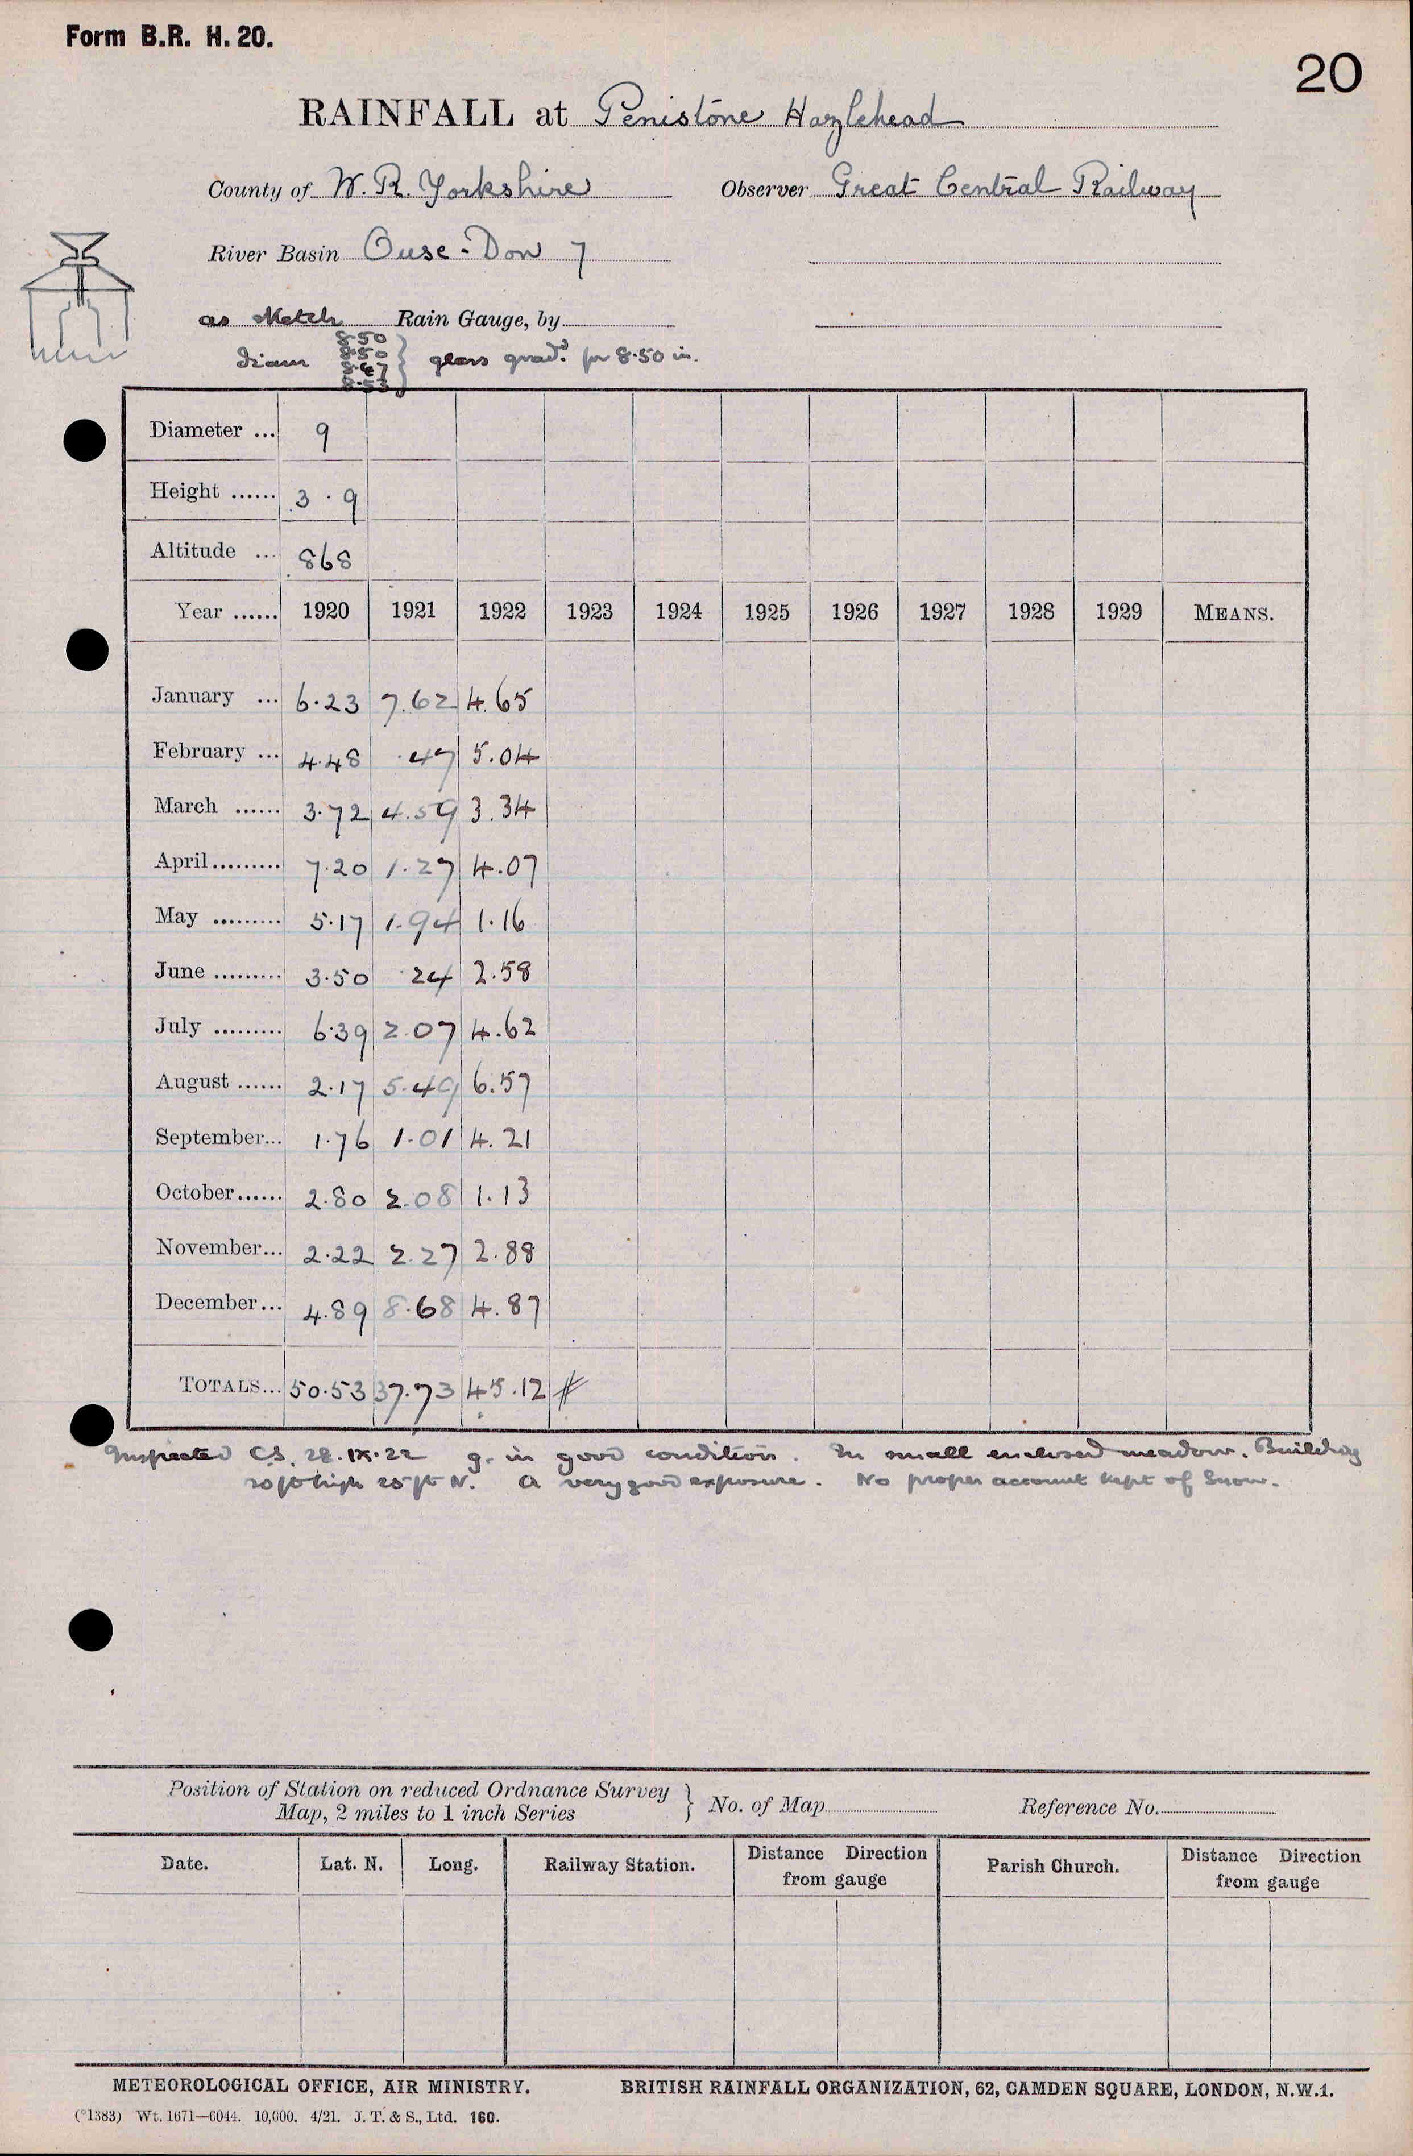 Form B.R. H. 20.
20
RAINFALL at Penistone Hazlehead
County of W. R. Yorkshire Observer Great Central Railway
River Basin Ouse - Don 7
as sketch Rain Gauge, by
8.50
8.50
diam 8.47 } glass grad.d for 8.50 in.
8.53
Diameter ... 9
Height ...... 3 . 9
Altitude ... 868
Year ...... 1920 1921 1922 1923 1924 1925 1926 1927 1928 1929 MEANS.
January ... 6.23 7.62 4.65
February ... 4.48 .47 5.04
March ...... 3.72 4.59 3.34
April......... 7.20 1.27 4.07
May ......... 5.17 1.94 1.16
June ......... 3.50 .24 2.58
July ......... 6.39 2.07 4.62
August ...... 2.17 5.49 6.57
September... 1.76 1.01 4.21
October...... 2.80 2.08 1.13
November... 2.22 2.27 2.88
December... 4.89 8.68 4.87
TOTALS... 50.53 37.73 45.12
Inspected C.S. 28.IX.22 g. in good condition. In small enclosed meadow. Building
20 ft high 25 ft N. A very good exposure. No proper account kept of Snow.
Position of Station on reduced Ordnance Survey
Map, 2 miles to 1 inch Series } No. of Map Reference No.
Date. Lat. N. Long. Railway Station. Distance Direction from gauge Parish Church. Distance Direction from gauge
METEOROLOGICAL OFFICE, AIR MINISTRY. BRITISH RAINFALL ORGANIZATION, 62, CAMDEN SQUARE, LONDON, N.W.1.
(*1383) Wt. 1671—6044. 10,000. 4/21. J. T. & S., Ltd. 160.